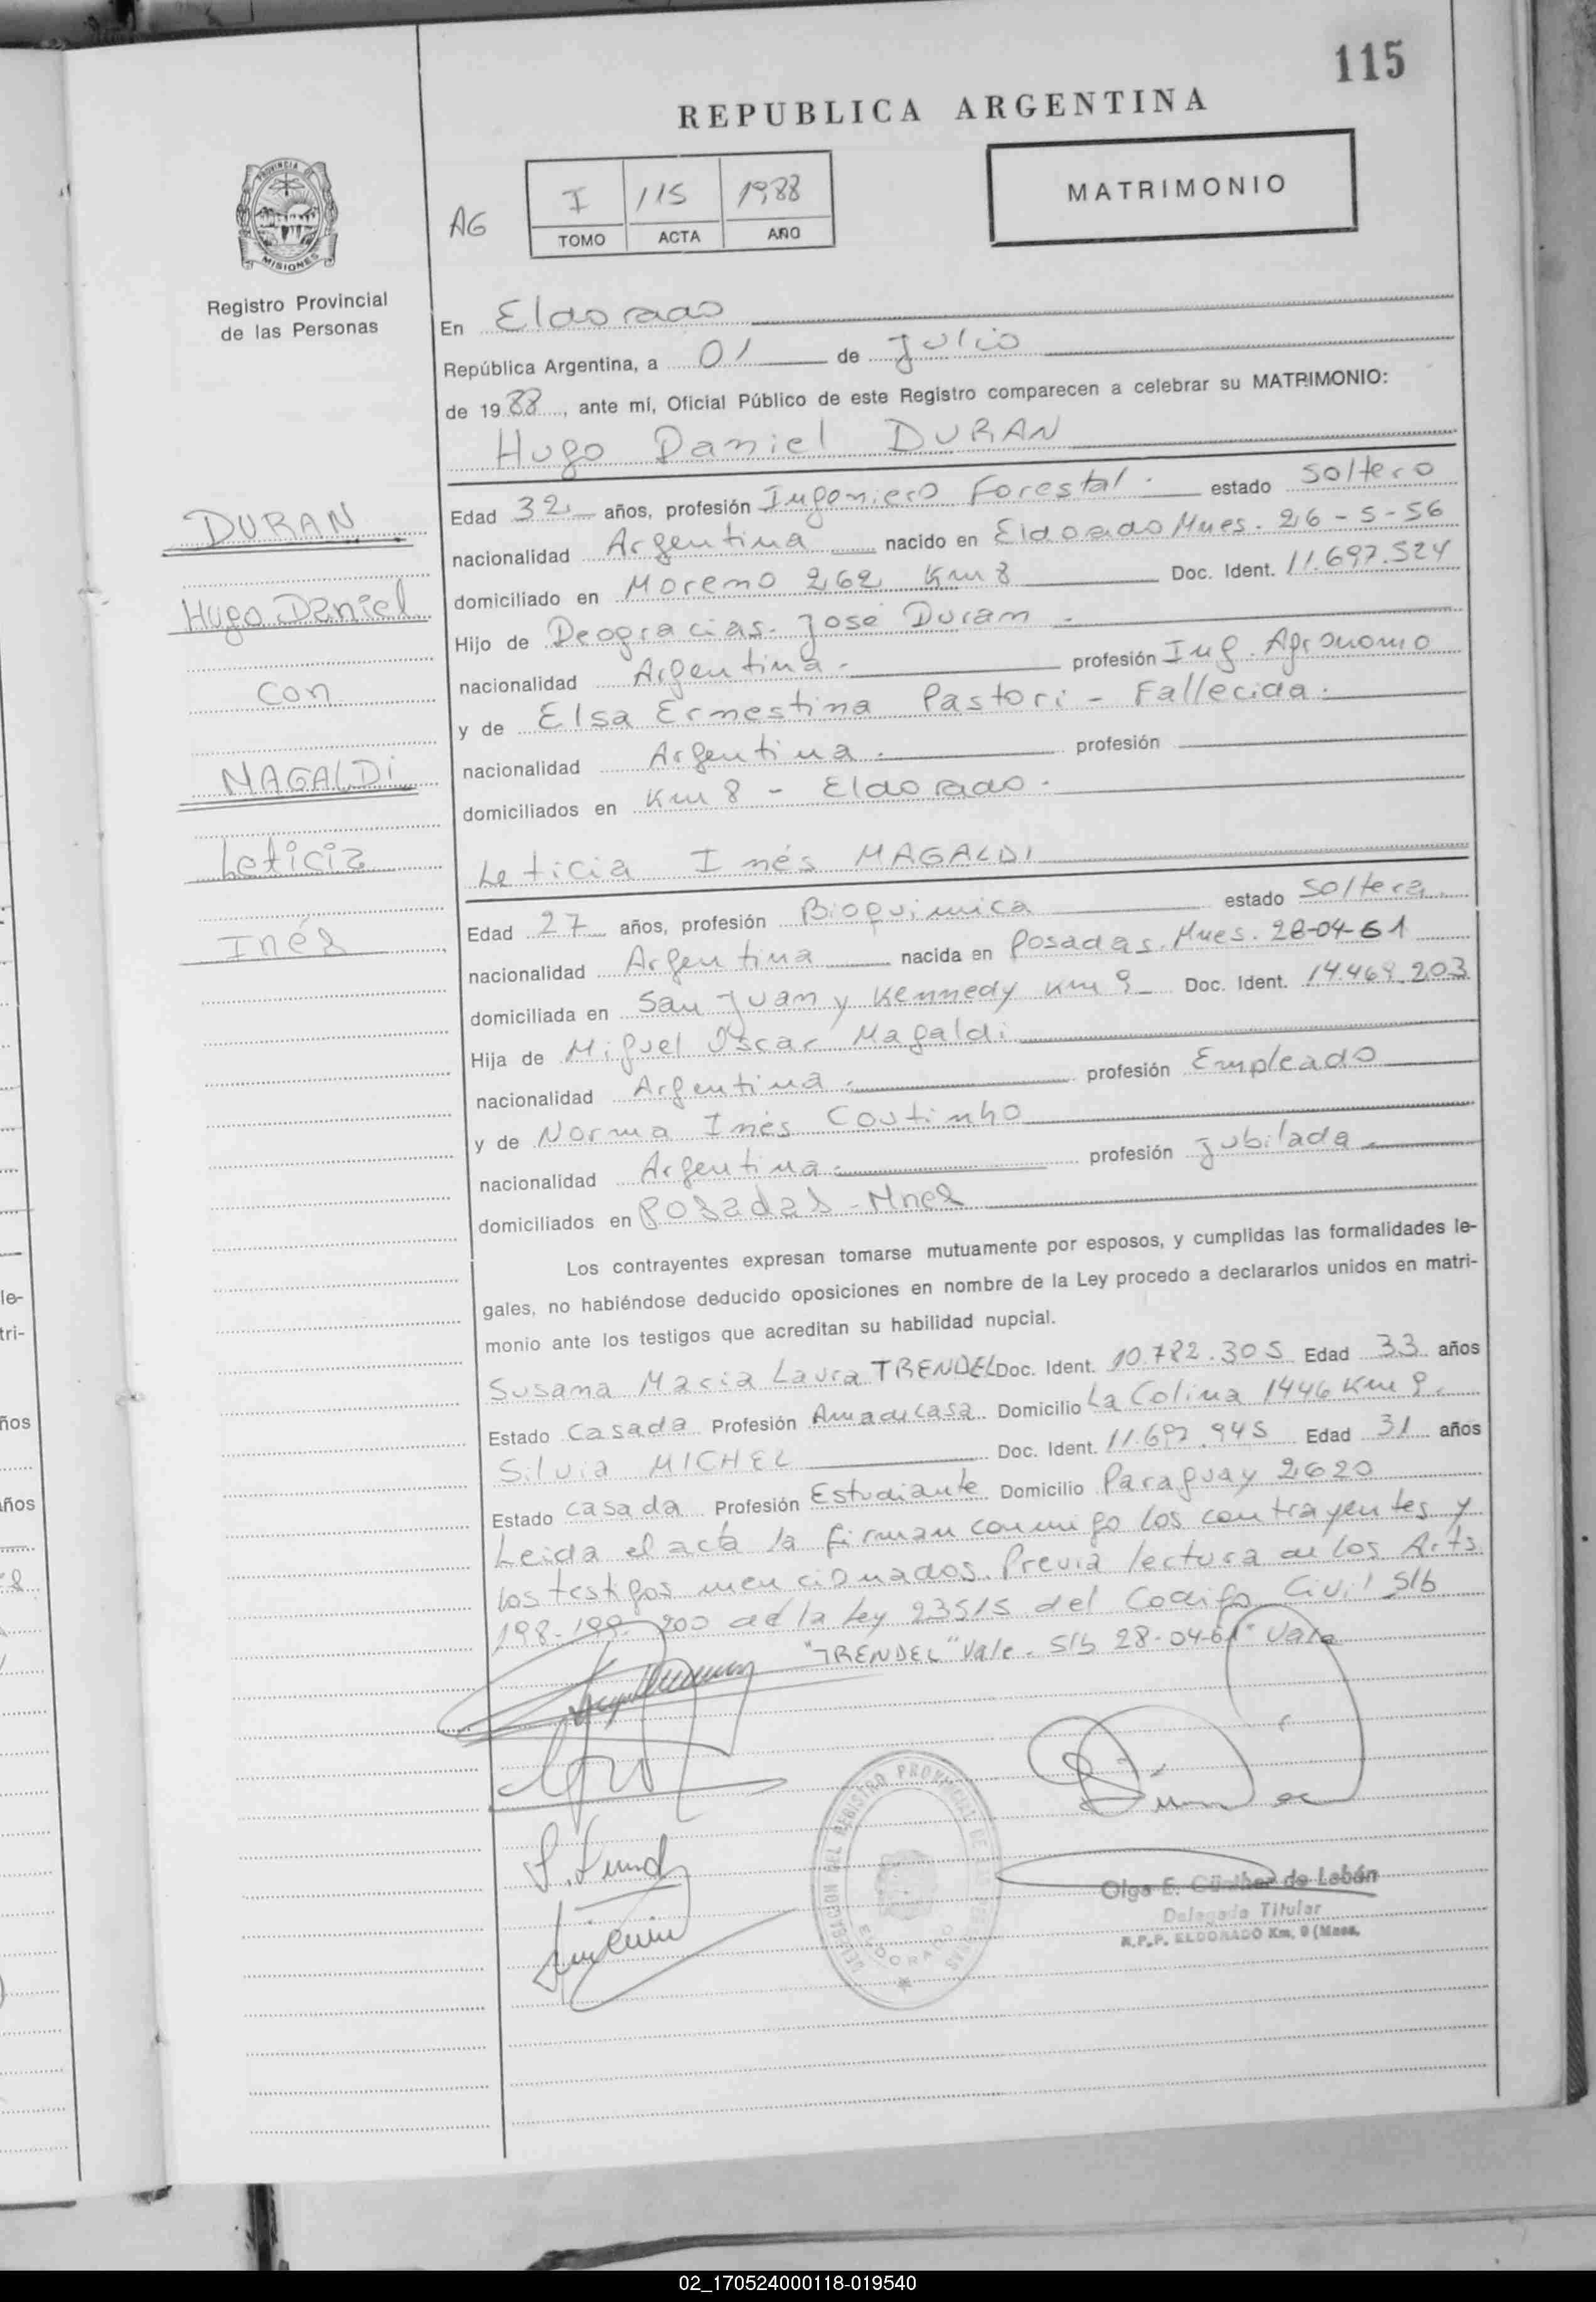 115
REPUBLICA ARGENTINA
PROVINCIA DE
MISIONES
Registro Provincial
de las Personas
AG
I 115 1988
TOMO ACTA AÑO
MATRIMONIO
En Eldorado
República Argentina, a 01 de Julio
de 1988, ante mí, Oficial Público de este Registro comparecen a celebrar su MATRIMONIO:
Hugo Daniel DURAN
Edad 32 años, profesión Ingeniero Forestal. estado Soltero
nacionalidad Argentina nacido en Eldorado Mnes. 26-5-56
domiciliado en Moreno 262 Km 8 Doc. Ident. 11.697.524
Hijo de Deogracias José Duran
nacionalidad Argentina. profesión Ing. Agronomo
y de Elsa Ernestina Pastori - Fallecida.
nacionalidad Argentina. profesión
domiciliados en Km 8 - Eldorado.
Leticia Inés MAGALDI
Edad 27 años, profesión Bioquimica estado Soltera
nacionalidad Argentina nacida en Posadas. Mnes. 28-04-61
domiciliada en San Juan y Kennedy Km 9 Doc. Ident. 14.469.203
Hija de Miguel Oscar Magaldi
nacionalidad Argentina. profesión Empleado
y de Norma Inés Coutinho
nacionalidad Argentina. profesión Jubilada
domiciliados en Posadas - Mnes
DURAN
Hugo Daniel
con
MAGALDI
Leticia
Inés
Los contrayentes expresan tomarse mutuamente por esposos, y cumplidas las formalidades le-
gales, no habiéndose deducido oposiciones en nombre de la Ley procedo a declararlos unidos en matri-
monio ante los testigos que acreditan su habilidad nupcial.
Susana Maria Laura TRENDEL Doc. Ident. 10.782.305 Edad 33 años
Estado Casada Profesión Ama de casa Domicilio La Colina 1446 Km 9.
Silvia MICHEL Doc. Ident. 11.697.945 Edad 31 años
Estado casada Profesión Estudiante Domicilio Paraguay 2620
Leida el acta la firman conmigo los contrayentes y
los testigos mencionados. Previa lectura de los Arts
198-199-200 de la Ley 23515 del Codigo Civil S/b
"TRENDEL" Vale. S/b 28-04-61" Vale
DELEGACION DEL REGISTRO PROVINCIAL DE LAS PERSONAS
ELDORADO
Olga E. Günther de Lebán
Delegada Titular
R.P.P. ELDORADO Km. 9 (Mnes.
02_170524000118-019540